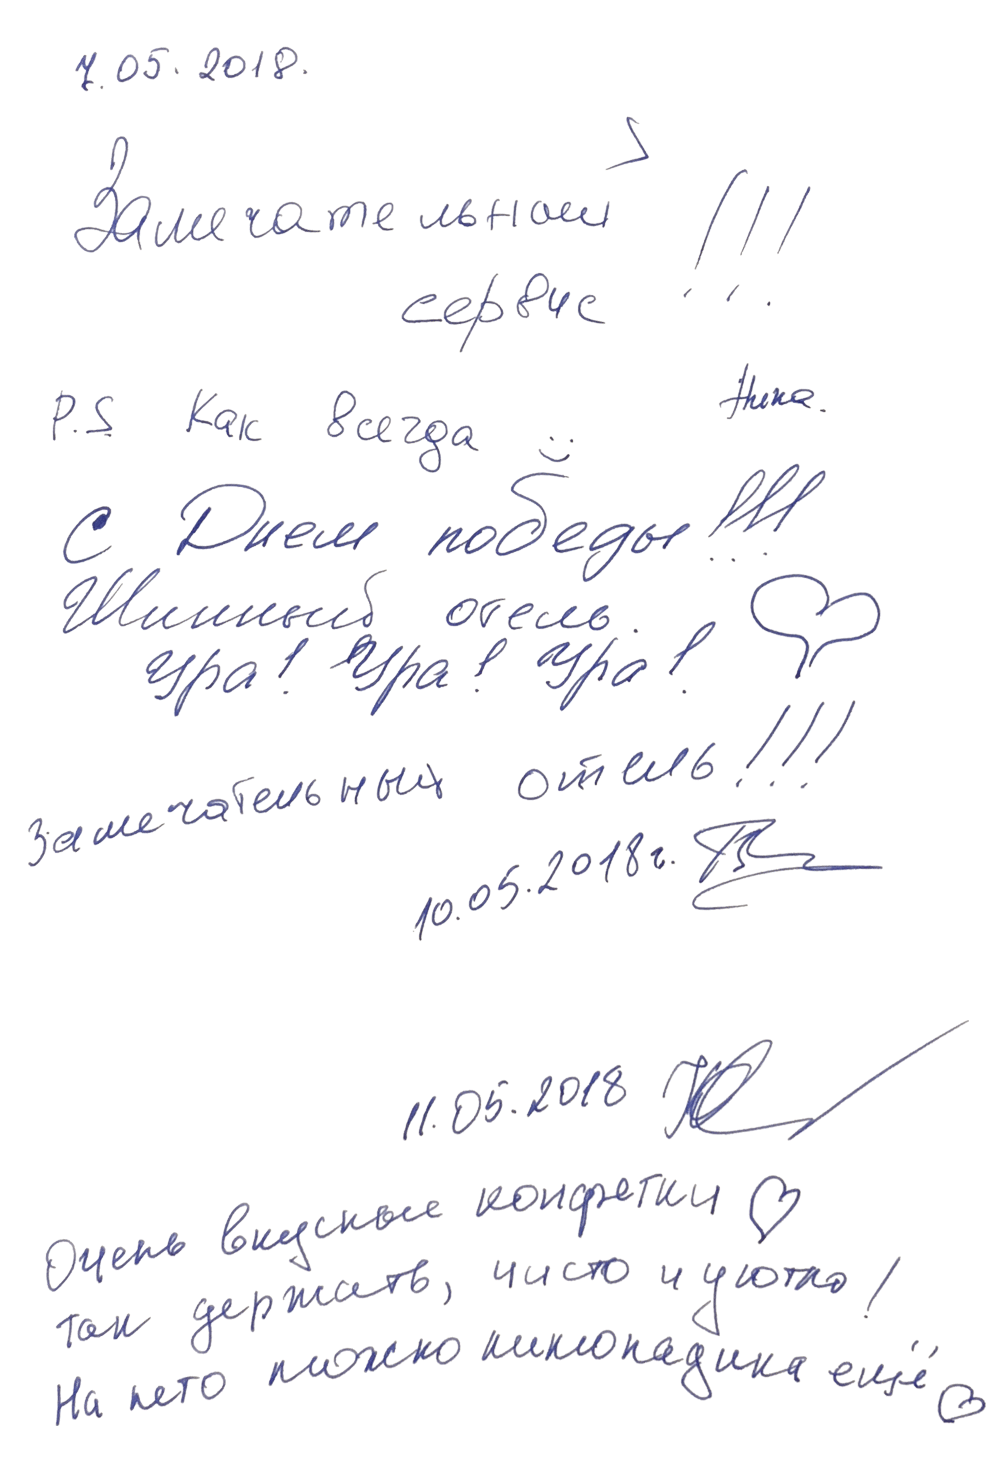 7.05.2018.
Замечательный !!!
сервис
Нина.
P.S Как всегда
С Днем победы!!!
отель.
Ура! Ура! Ура!
Замечательных отель!!!
10.05.2018г.
11.05.2018
Очень вкусные конфетки
так держать, чисто и уютно!
На лето можно лимонадика ещё